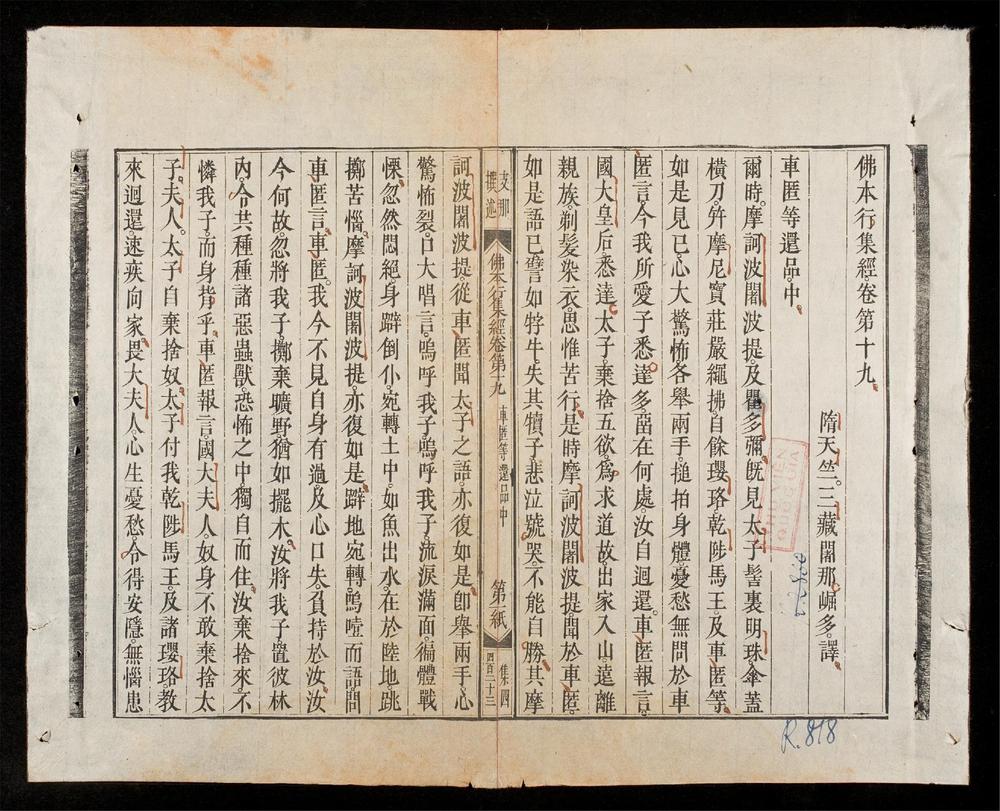 佛本行集經卷第十九
隋天竺三藏闍那崛多譯
車匿等還品中
爾時。摩訶波闍波提。及瞿多彌。旣見太子髻裏明珠。傘蓋
橫刀。幷摩尼寶莊嚴繩拂。自餘瓔珞。乾陟馬王。及車匿等。
如是見已。心大驚怖。各舉兩手。搥拍身體。憂愁無問於車
匿言。今我所愛子悉達多。畱在何處。汝自迴還。車匿報言。
國大皇后。悉達太子。棄捨五欲。爲求道故。出家入山。遠離
親族。剃髮染衣。思惟苦行。是時摩訶波闍波提。聞於車匿。
如是語已。譬如牸牛。失其犢子。悲泣號哭。不能自勝。其摩
支那
撰述
佛本行集經卷第十九
車匿等還品中
第一紙
集四
四百二十三
訶波闍波提。從車匿聞太子之語。亦復如是。卽舉兩手。心
驚怖裂。口大唱言。嗚呼我子。嗚呼我子。流淚滿面。徧體戰
慄。忽然悶絕。身躃倒仆。宛轉土中。如魚出水。在於陸地。跳
擲苦惱。摩訶波闍波提。亦復如是。躃地宛轉。嗚噎而語。問
車匿言。車匿。我今不見自身有過。及心口失。負持於汝。汝
今何故忽將我子。擲棄曠野。猶如擺木。汝將我子。置彼林
內。令共種種諸惡蟲獸。恐怖之中。獨自而住。汝棄捨來。不
憐我子。而身背乎。車匿報言。國大夫人。奴身不敢棄捨太
子。夫人。太子自棄捨奴。太子付我乾陟馬王。及諸瓔珞。教
來迴還。速疾向家。畏大夫人。心生憂愁。令得安隱。無惱患
R. 818